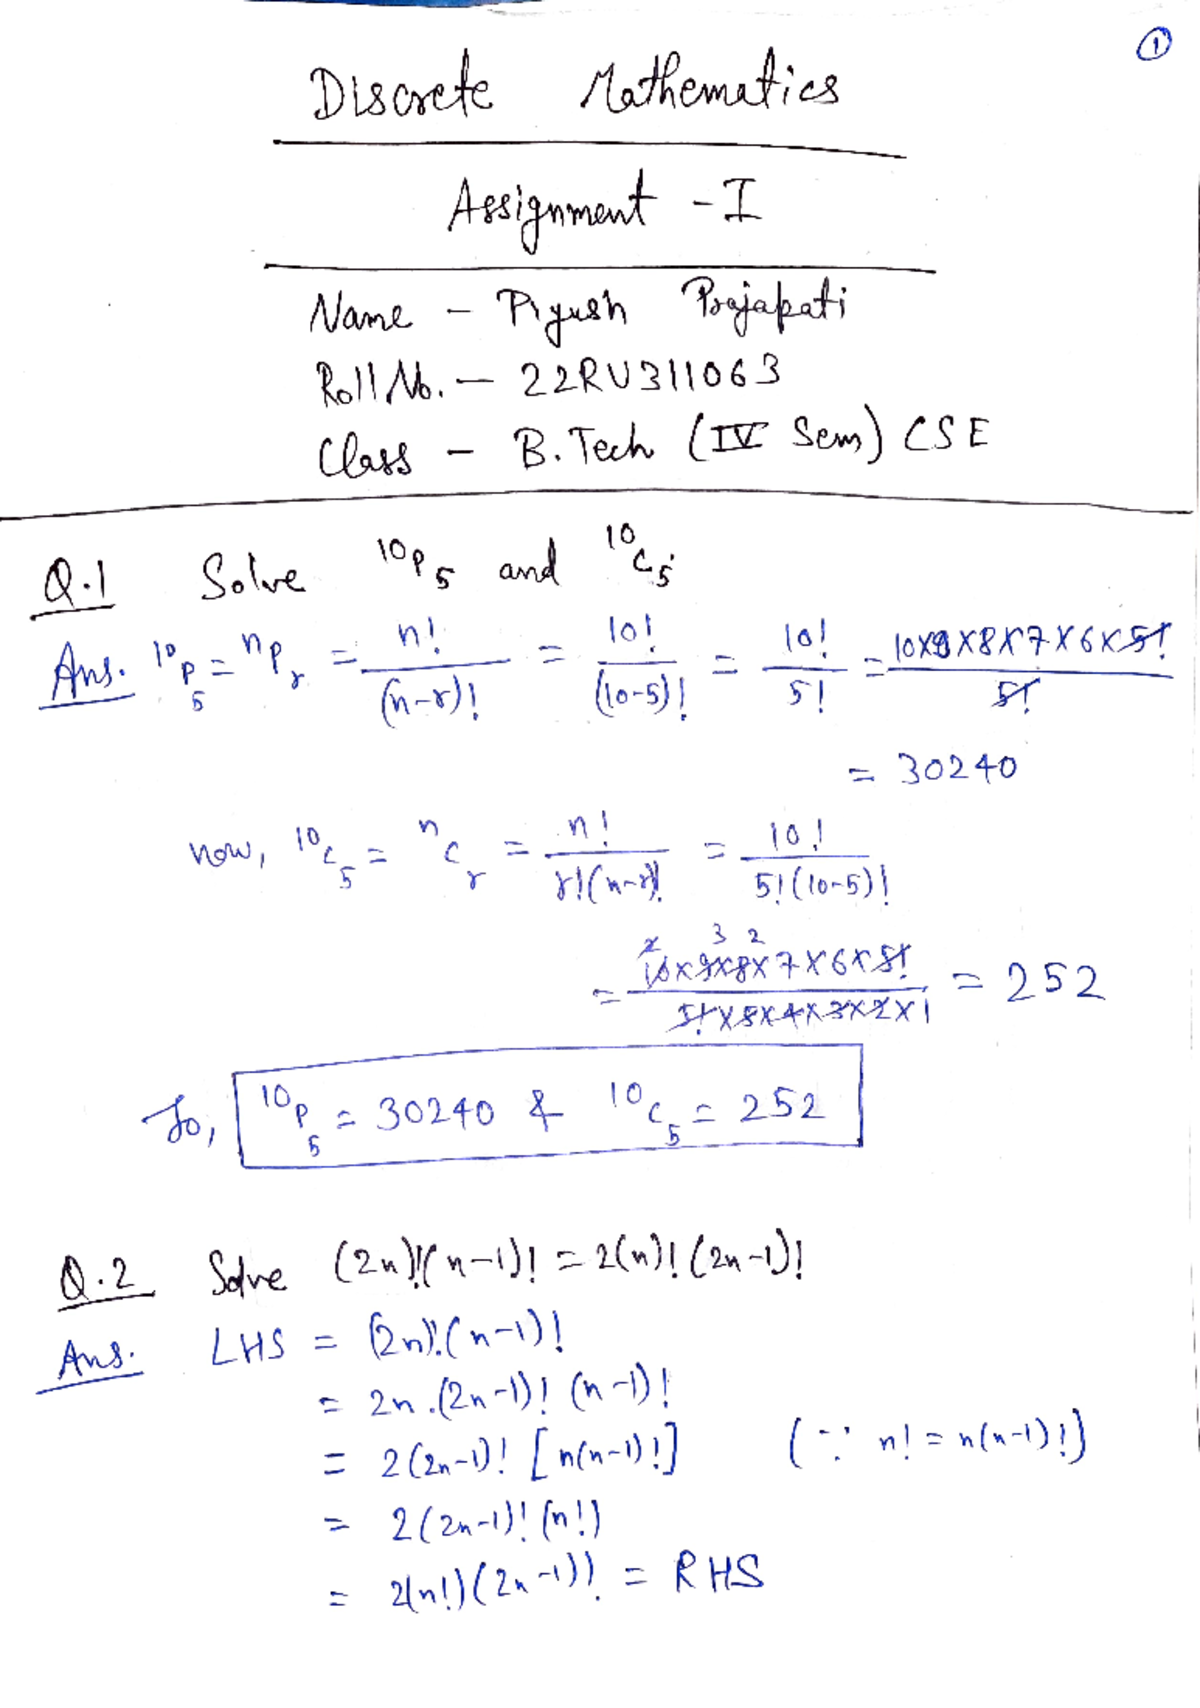 ①
Discrete Mathematics
Assignment - I
Name - Piyush Prajapati
Roll No. - 22RU311063
Class - B.Tech (IV Sem) CSE
Q.1 Solve ¹⁰P₅ and ¹⁰C₅
Ans. ¹⁰P₅ = ⁿPᵣ = n!/(n-r)! = 10!/(10-5)! = 10!/5! = 10×9×8×7×6×5!/5!
= 30240
now, ¹⁰C₅ = ⁿCᵣ = n!/r!(n-r)! = 10!/5!(10-5)!
= 10×9×8×7×6×5!/5!×5×4×3×2×1 = 252
So, ¹⁰P₅ = 30240 & ¹⁰C₅ = 252
Q.2 Solve (2n)!(n-1)! = 2(n)! (2n-1)!
Ans. LHS = (2n)!(n-1)!
= 2n.(2n-1)! (n-1)!
= 2(2n-1)! [n(n-1)!] (∵ n! = n(n-1)!)
= 2(2n-1)! (n!)
= 2(n!)(2n-1)! = RHS